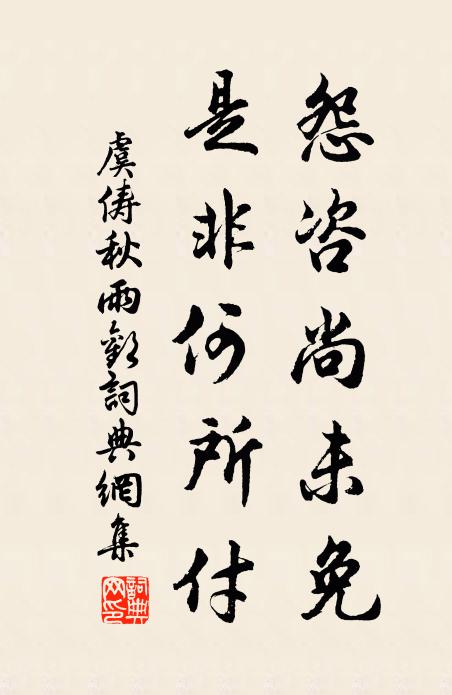 怨咨尚未免
是非何所付
虞儔秋雨歎詞典網集
詞典网印